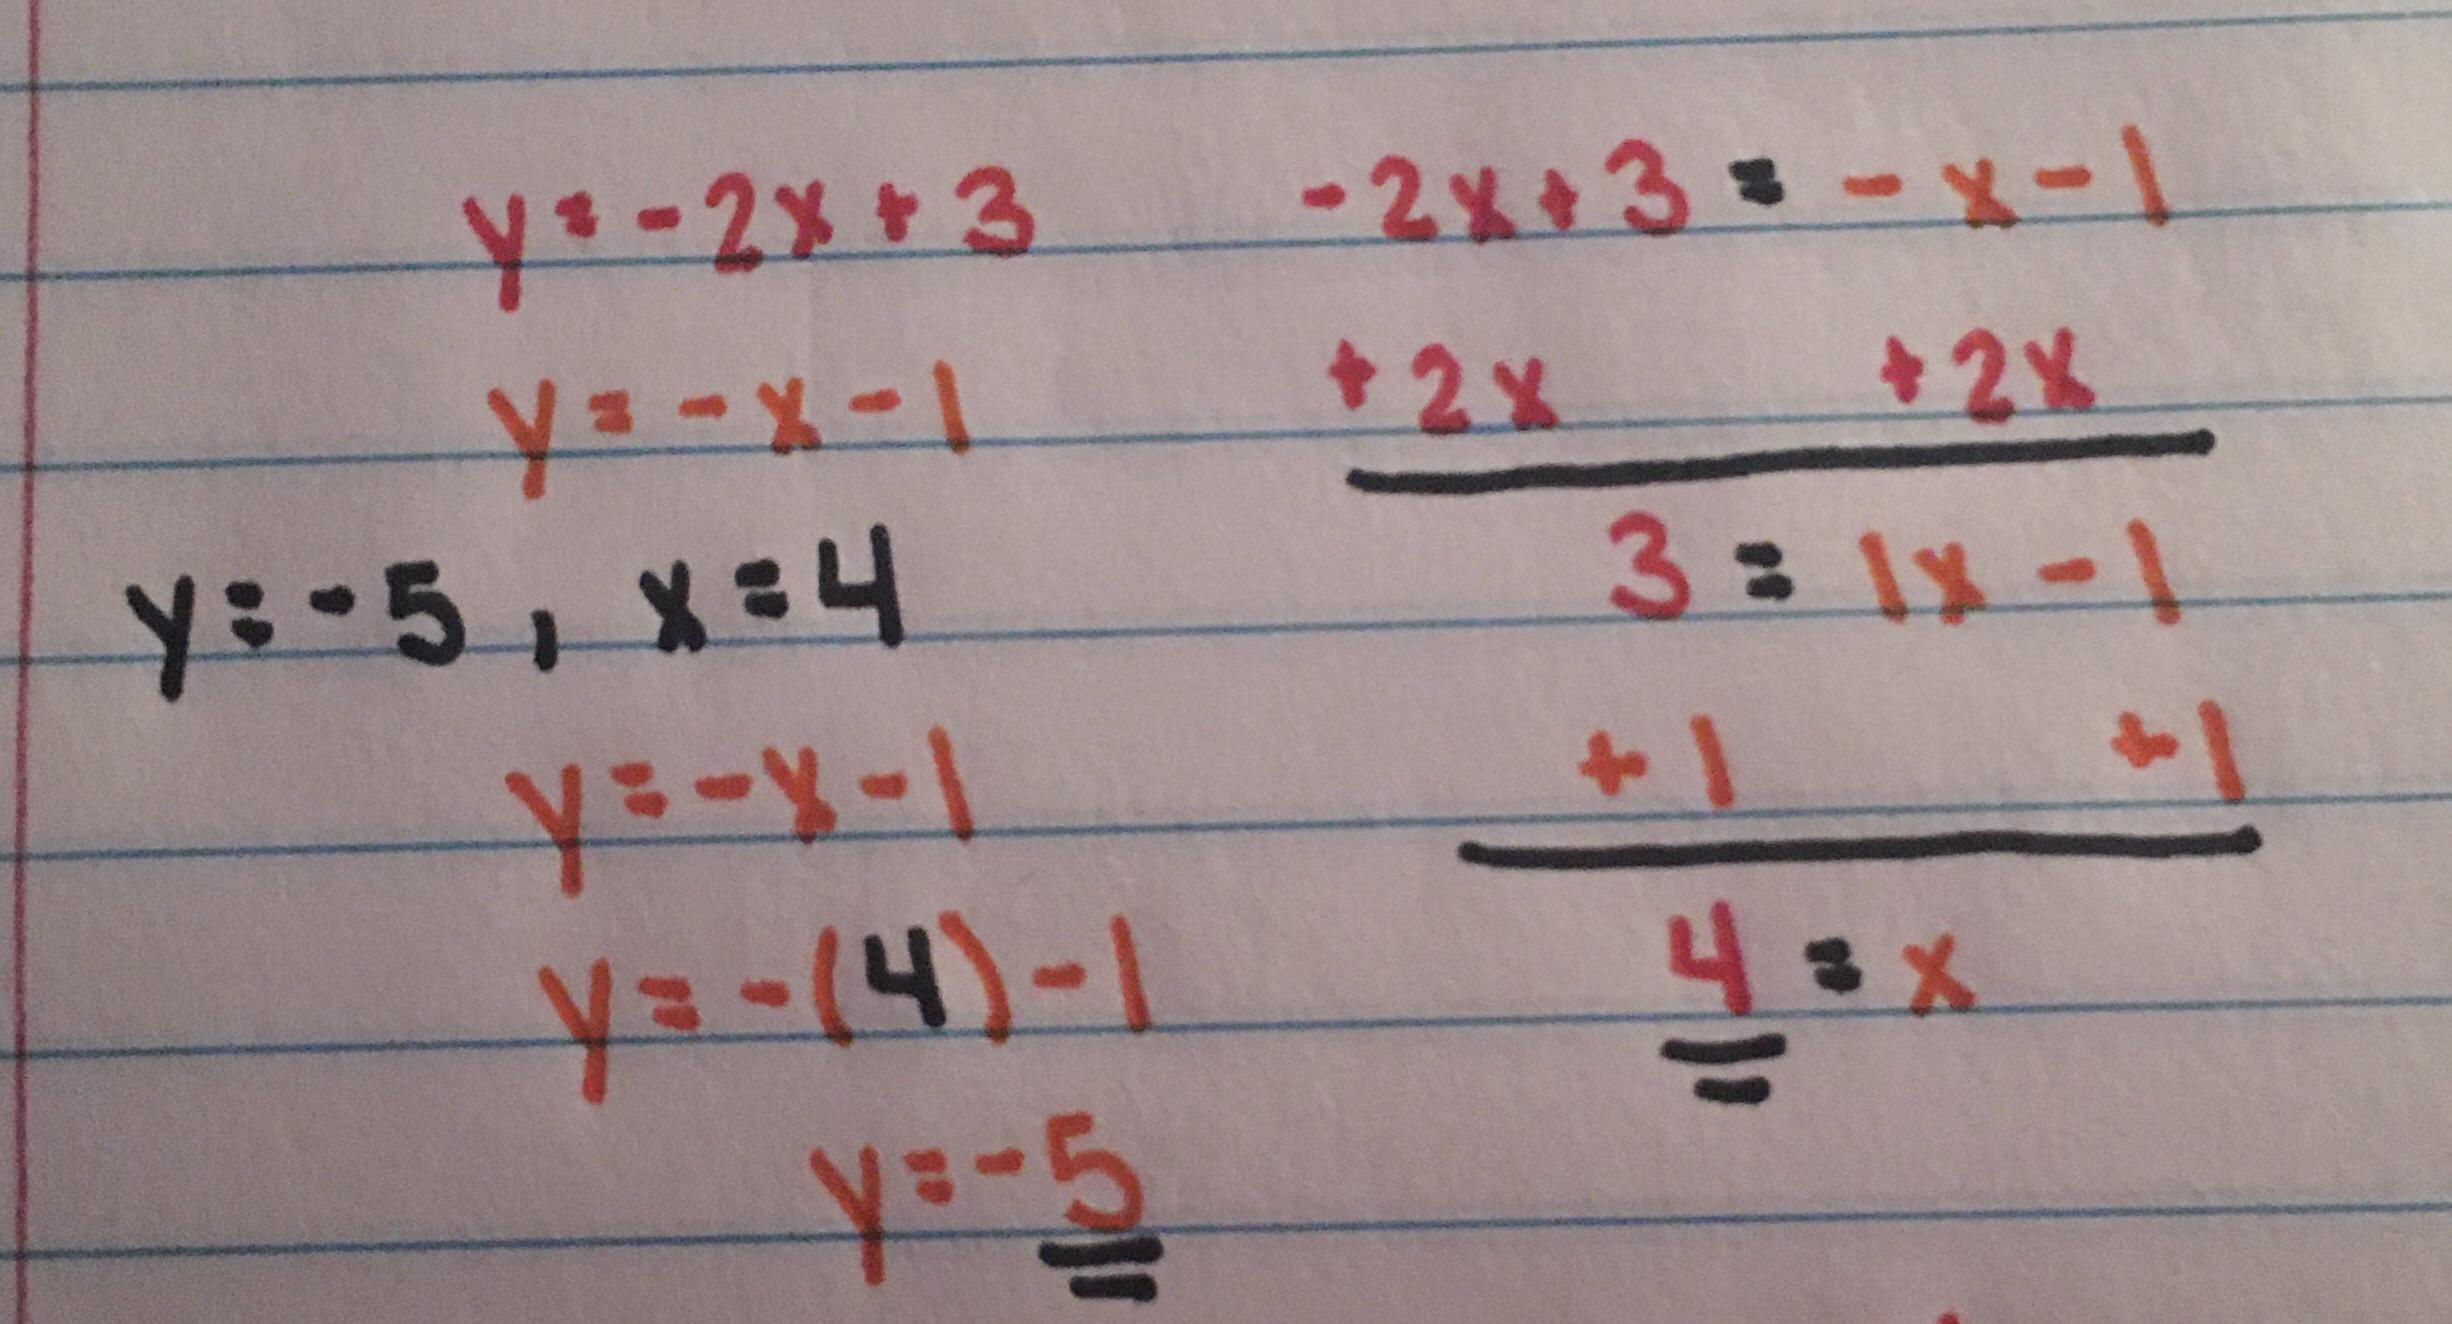 y=-2x+3
y=-x-1
y=-5, x=4
y=-x-1
y=-(4)-1
y=-5
-2x+3=-x-1
+2x +2x
3=1x-1
+1 +1
4=x